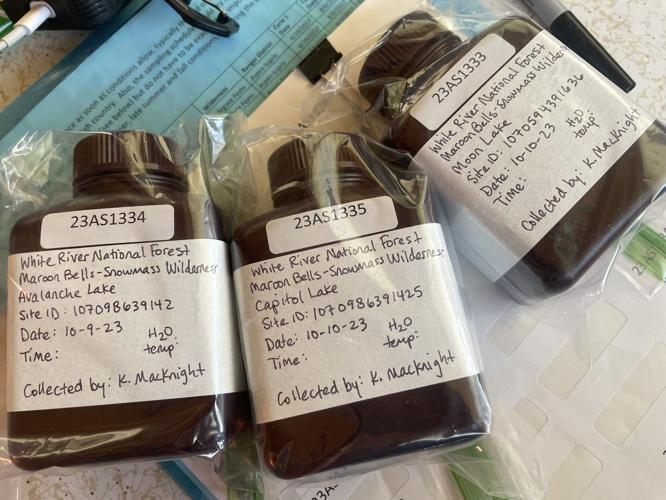 23AS1334
White River National Forest
Maroon Bells-Snowmass Wilderness
Avalanche Lake
Site ID: 107098639142
Date: 10-9-23 H2O
Time: temp:
Collected by: K. MacKnight
23AS1335
White River National Forest
Maroon Bells-Snowmass Wilderness
Capitol Lake
Site ID: 1070986391425
Date: 10-10-23 H2O
Time: temp:
Collected by: K. MacKnight
23AS1333
White River National Forest
Maroon Bells-Snowmass Wilderness
Moon Lake
Site ID: 1070594391636
Date: 10-10-23 H2O
Time: temp:
Collected by: K. MacKnight
as soon as conditions allow, typically
Also, the sampling schedule
below) but do not have to be
late summer and fall conditions
Wilderness
Ranger District